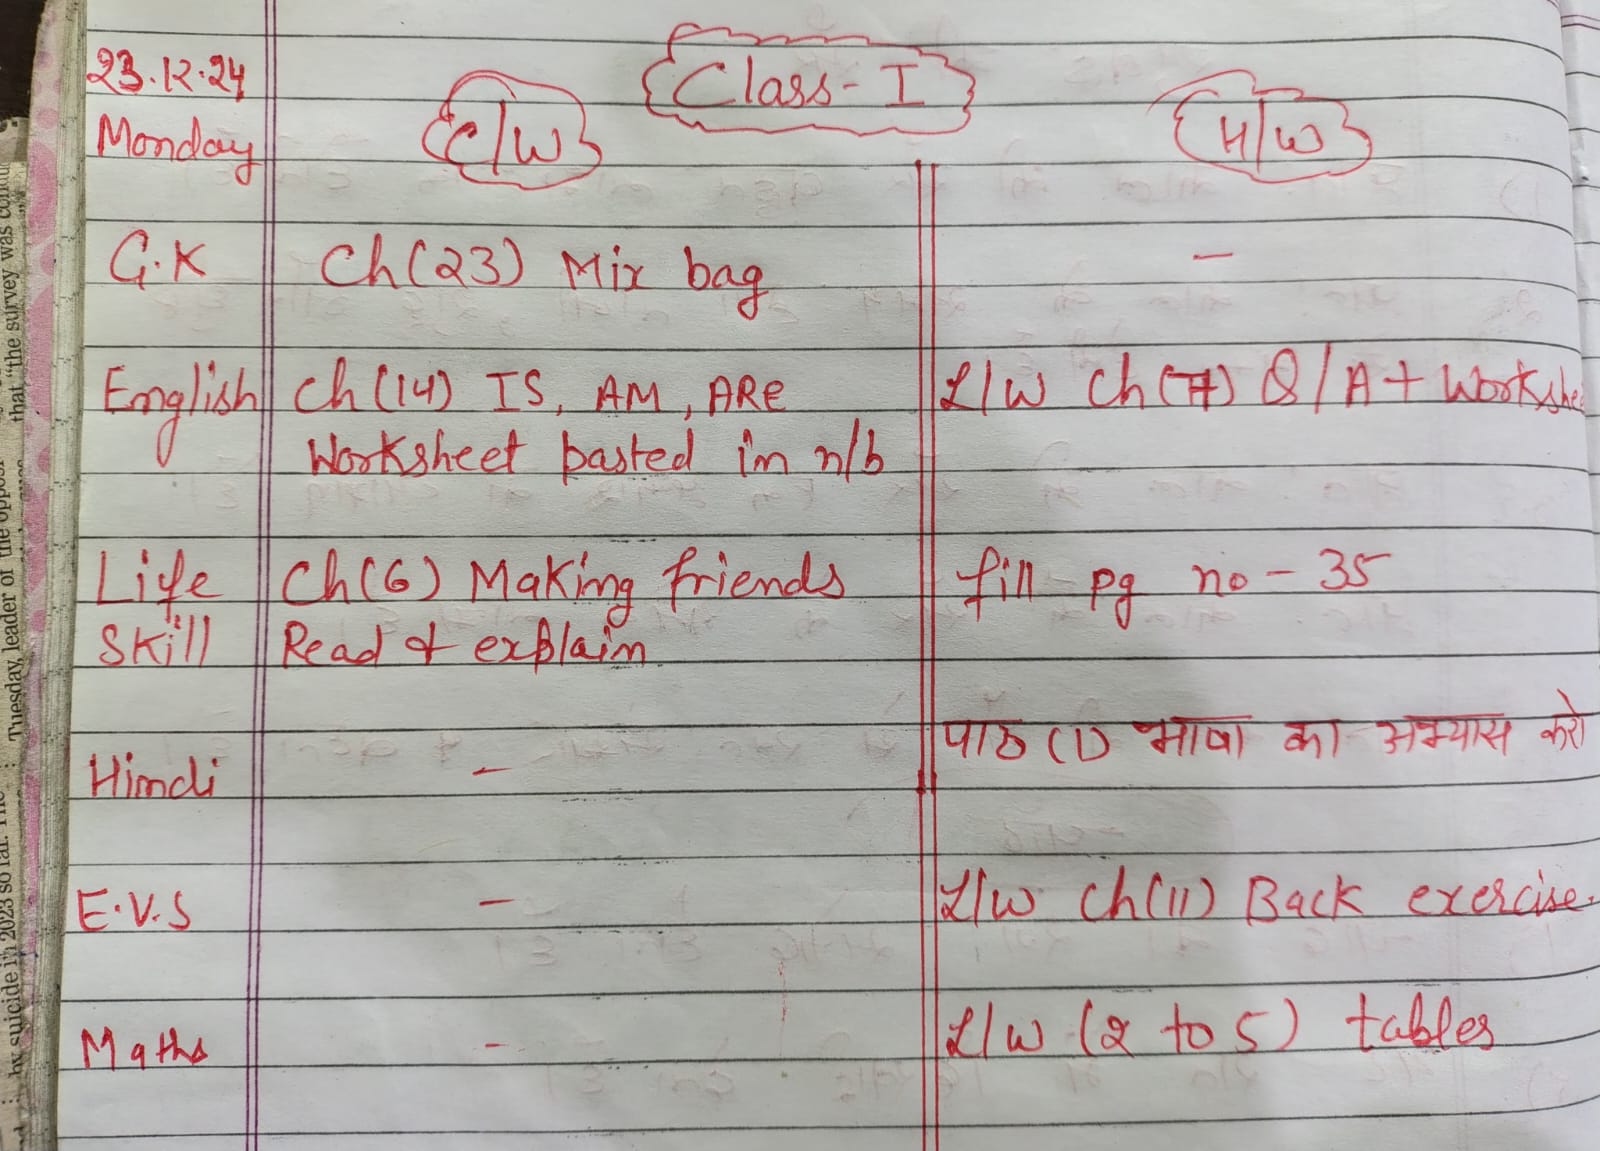 Class-I
23.12.24
Monday C/W H/W
G.K Ch(23) Mix bag -
English Ch(14) IS, AM, ARE L/W Ch(7) Q/A + Workshee
Worksheet pasted in n/b
Life Ch(6) Making friends fill pg no - 35
Skill Read & explain
पाठ (1) भाषा का अभ्यास करो
Hindi -
E.V.S - L/W Ch(11) Back exercise.
Maths - L/W (2 to 5) tables
that "the survey was condu
Tuesday, leader of the oppos
by suicide in 2023 so far. The